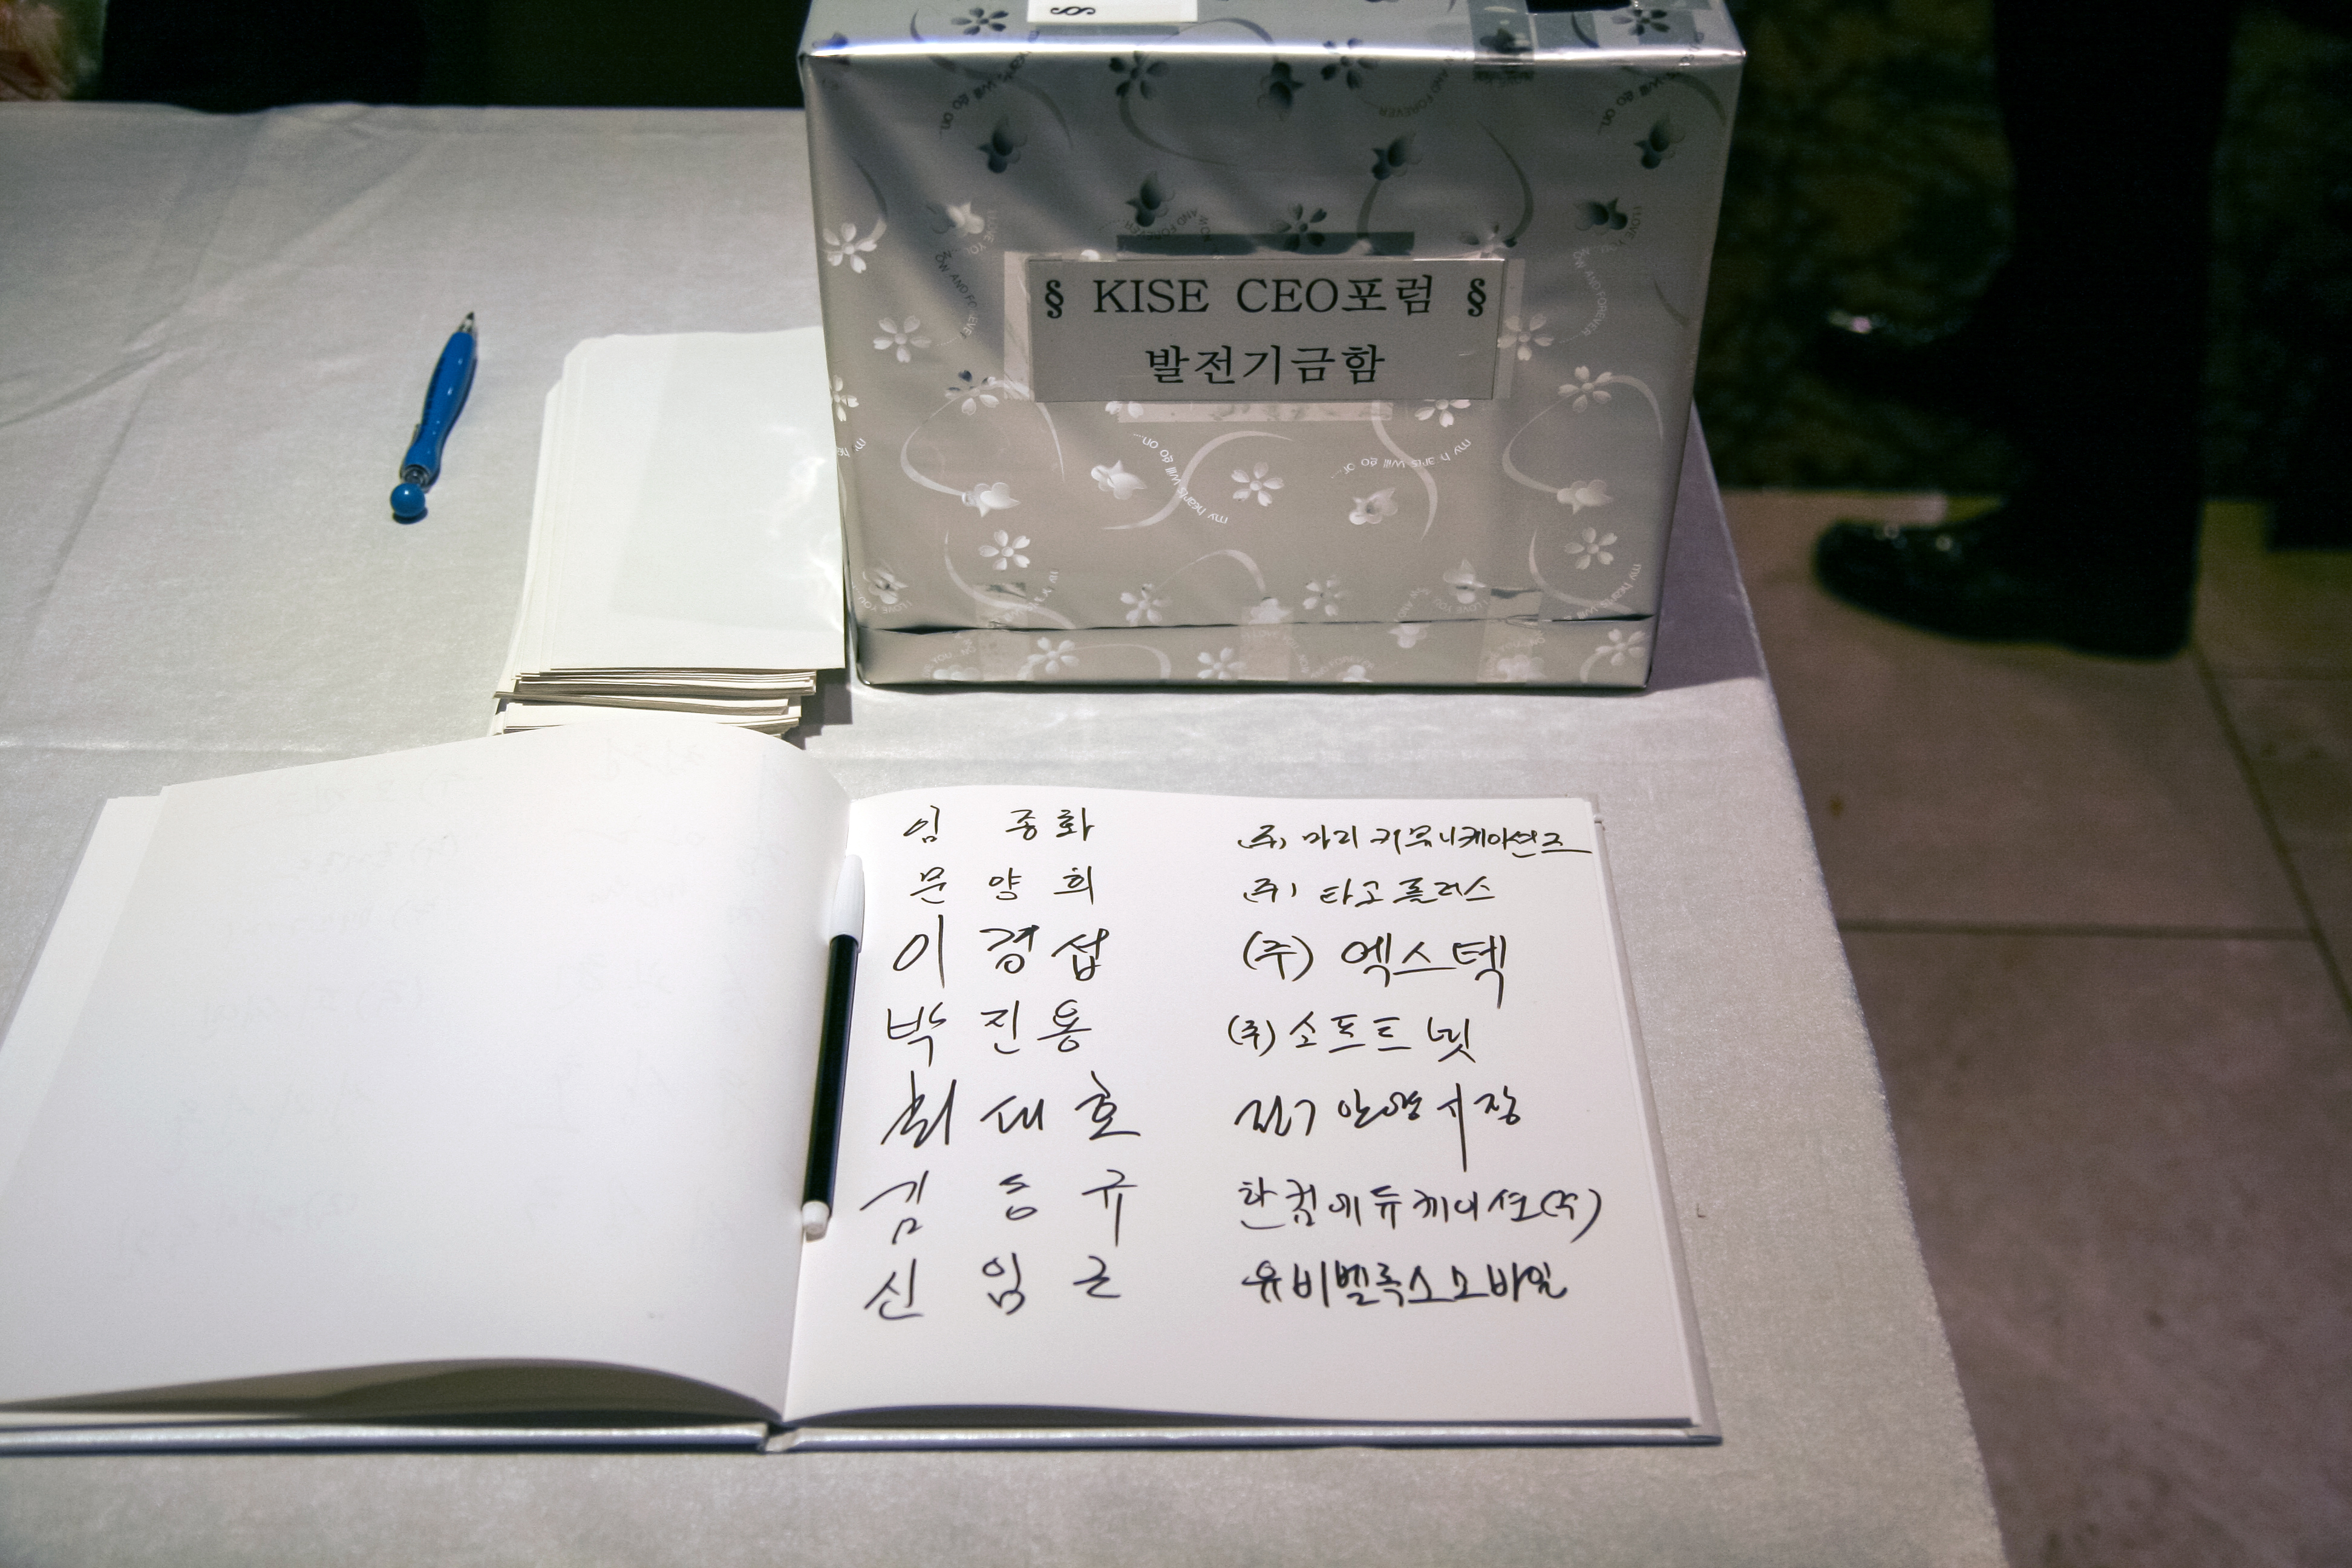 § KISE CEO포럼 §
발전기금함
임 종화 (주) 마리 커뮤니케이션즈
문 양 희 (주) 타고플러스
이 경 섭 (주) 엑스텍
박 진 용 (주) 소프트넷
최 대 호 안양시장
김 동 규 한컴에듀케이션(주)
신 임 근 유비벨록스모바일